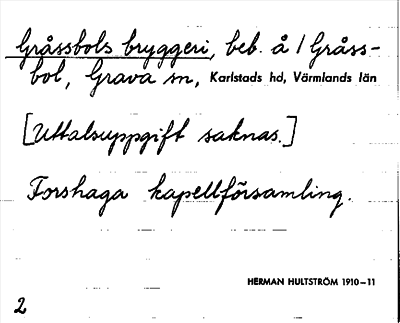 Gråssbols bryggeri, beb. å 1 Gråss-
bol, Grava sn, Karlstads hd, Värmlands län
[Uttalsuppgift saknas.]
Forshaga kapellförsamling.
HERMAN HULTSTRÖM 1910–11
2